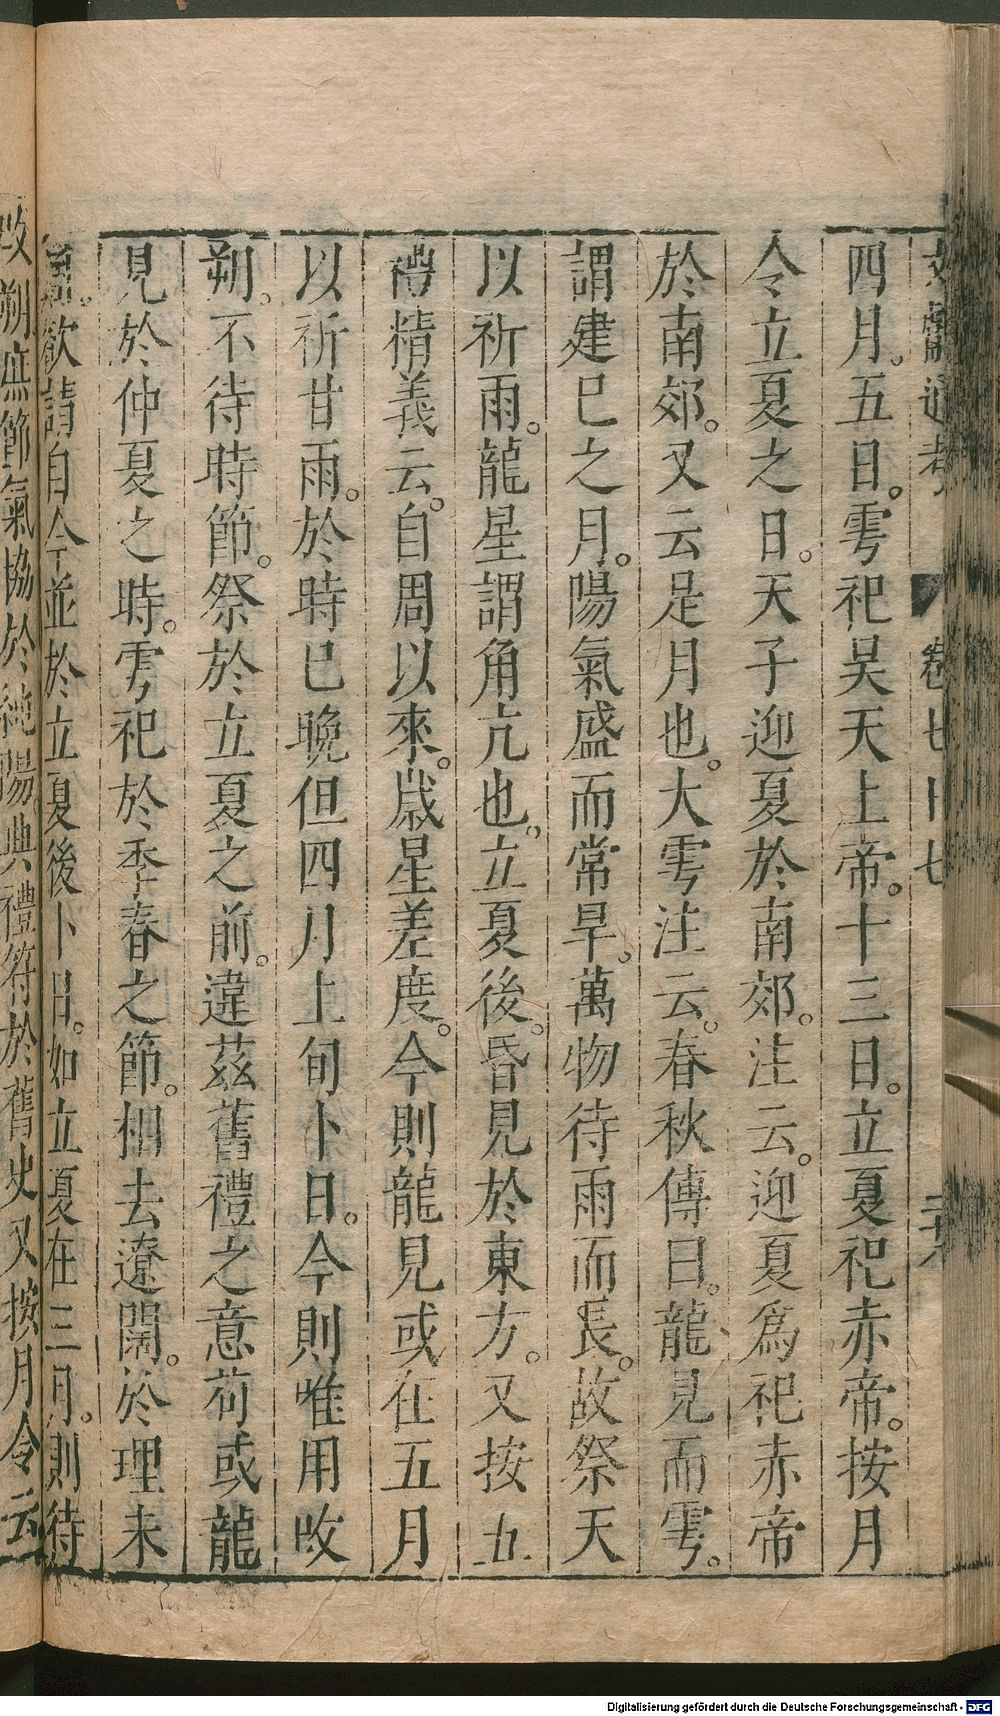 文獻通考 卷七十七 二十八
四月。五日。雩祀昊天上帝。十三日。立夏祀赤帝。按月
令立夏之日。天子迎夏於南郊。注云。迎夏爲祀赤帝
於南郊。又云是月也。大雩注云。春秋傳曰。龍見而雩。
謂建巳之月。陽氣盛而常旱。萬物待雨而長。故祭天
以祈雨。龍星謂角亢也。立夏後。昏見於東方。又按五
禮精義云。自周以來。歲星差度。今則龍見或在五月
以祈甘雨。於時已晚但四月上旬卜日。今則唯用改
朔。不待時節。祭於立夏之前。違茲舊禮之意苟或龍
見於仲夏之時。雩祀於季春之節。相去遼闊。於理未
欲請自今並於立夏後卜日。如立夏在三月。則待
改朔庶節氣協於純陽典禮符於舊史又按月令云
Digitalisierung gefördert durch die Deutsche Forschungsgemeinschaft - DFG